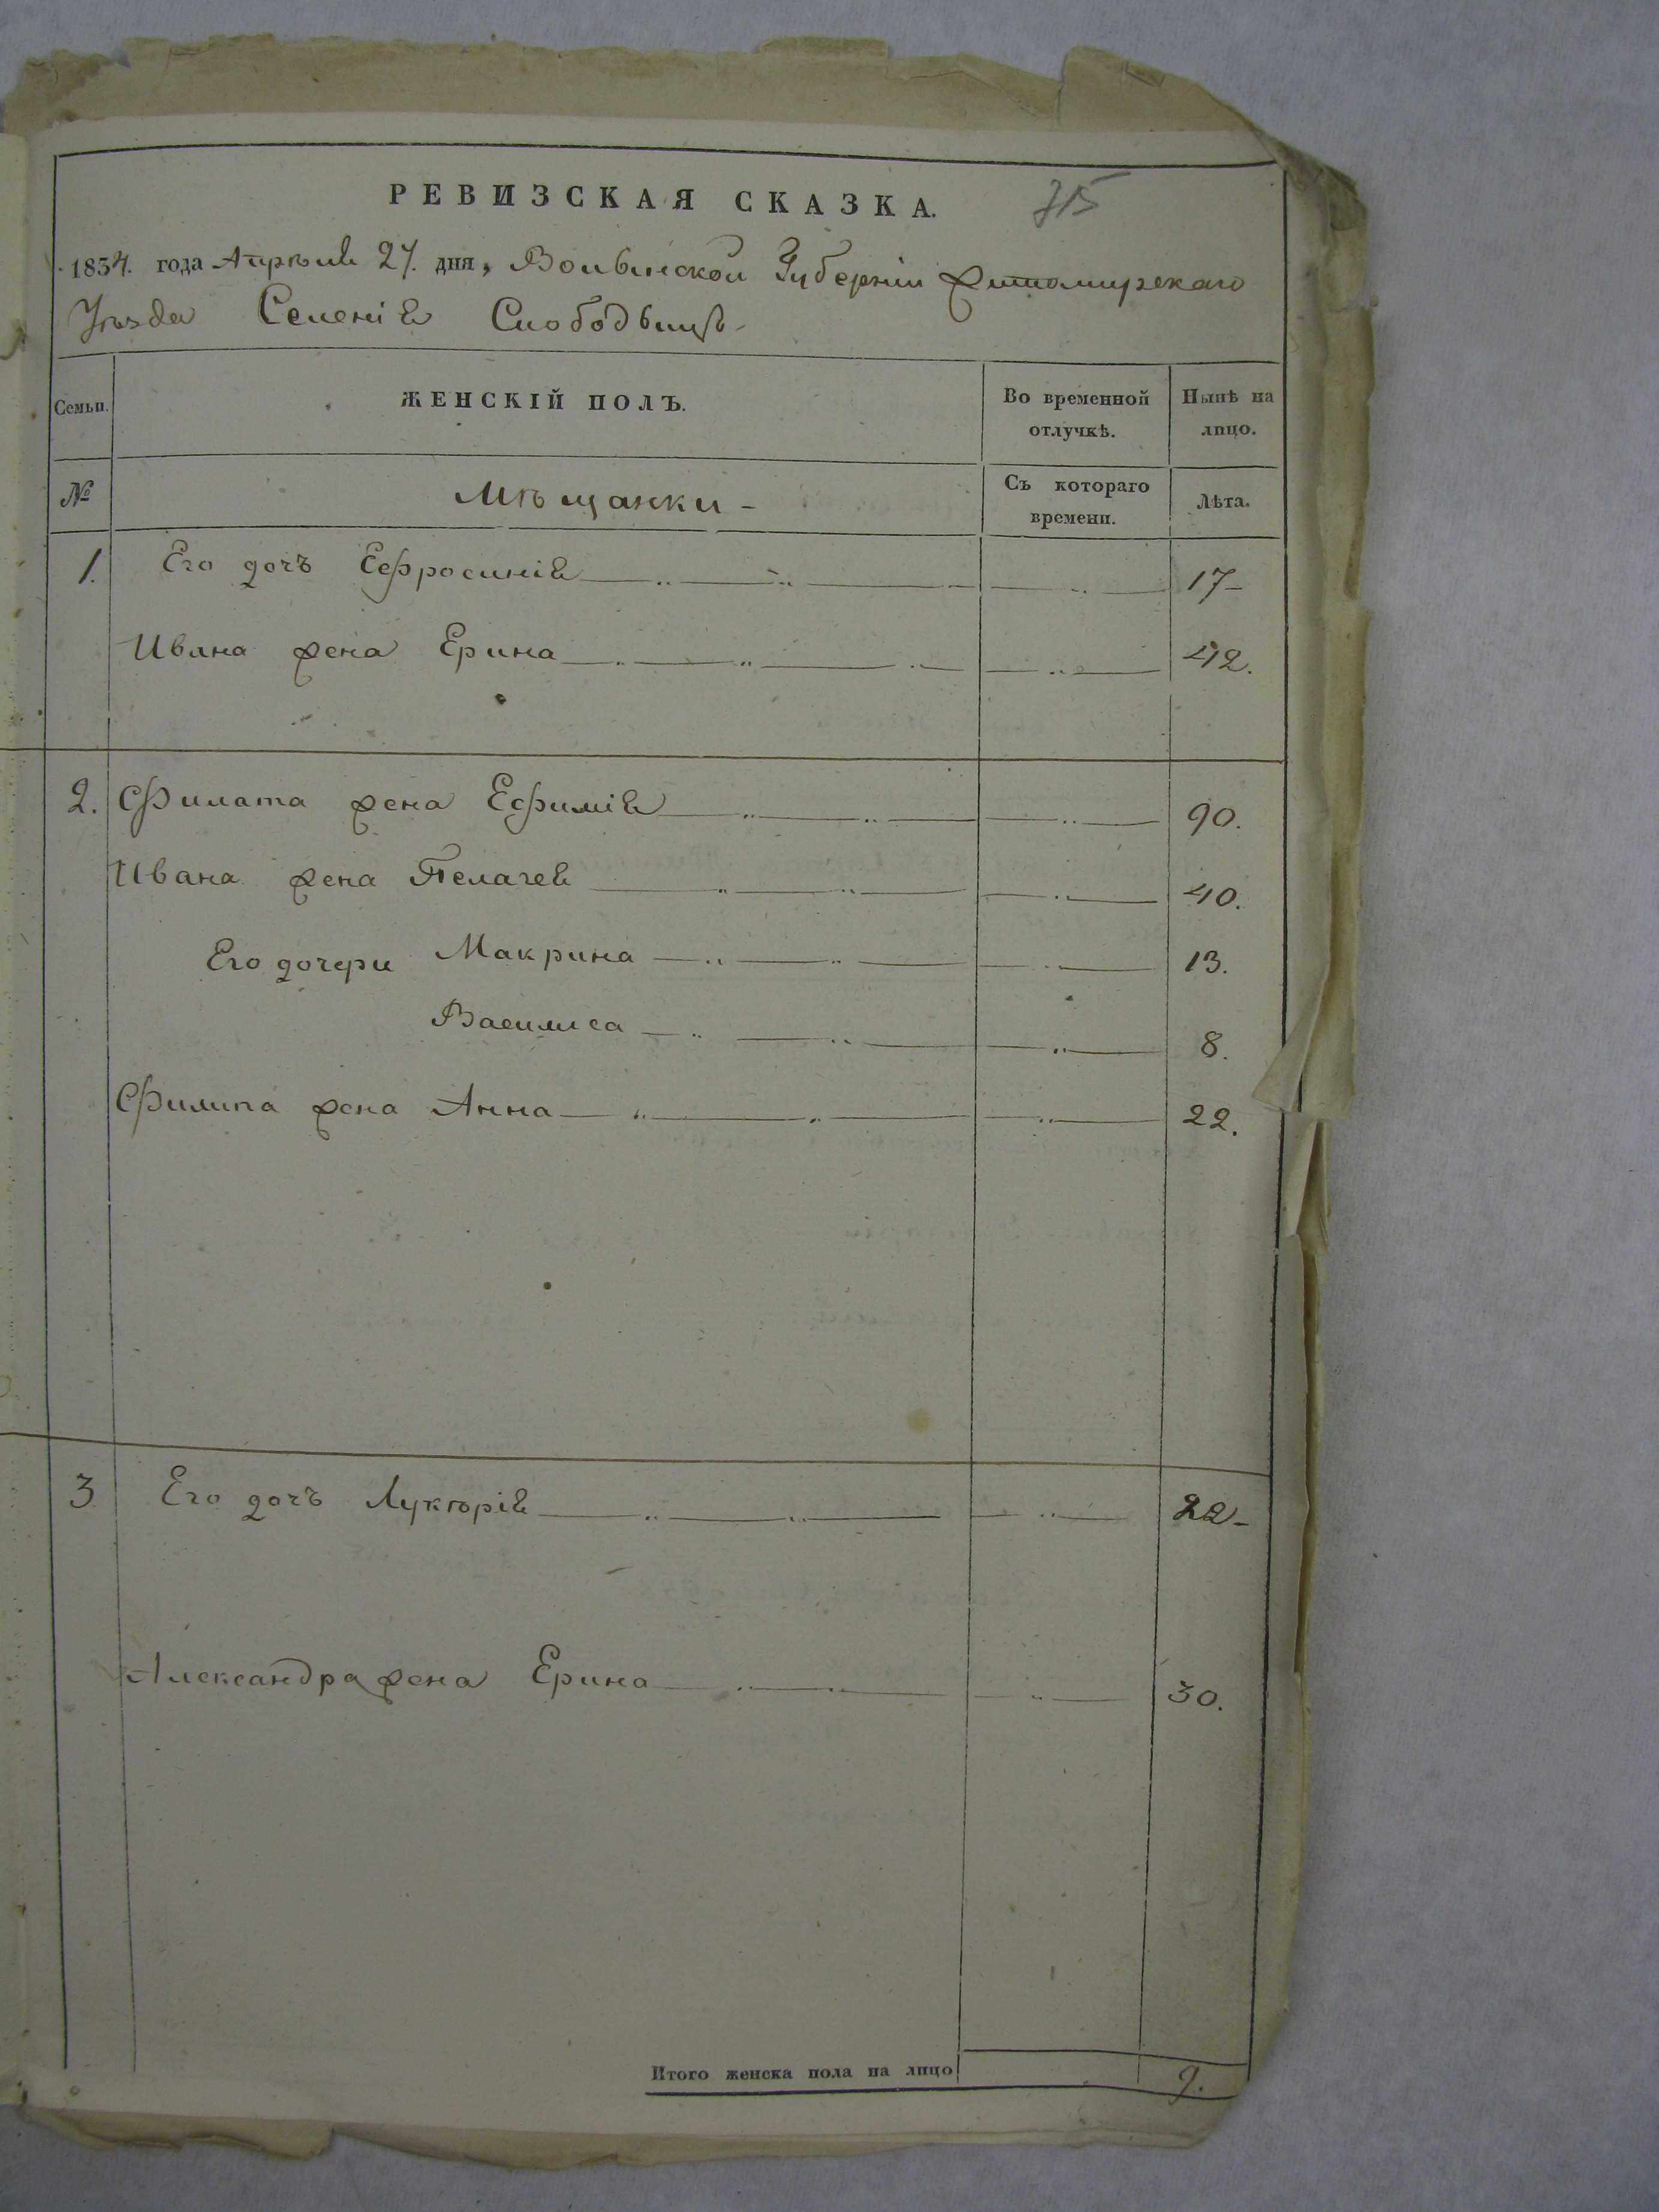 РЕВИЗСКАЯ СКАЗКА. 715
1834. года Апрѣля 27. дня, Волынской Губерніи Житомирскаго
Уѣзда Селенія Слободыщь
Семьи. ЖЕНСКІЙ ПОЛЪ. Во временной отлучкѣ. Нынѣ на лицо.
№ Мѣщанки - Съ котораго времени. Лѣта.
1. Его дочъ Ефросинія 17-
Ивана жена Ерина 42.
2. Филата жена Ефимія 90.
Ивана жена Пелагея 40.
Его дочери Макрина 13.
Василиса 8.
Филипа жена Анна 22.
3 Его дочъ Лукѣрія 22-
Александра жена Ерина 30.
Итого женска пола на лицо 9.